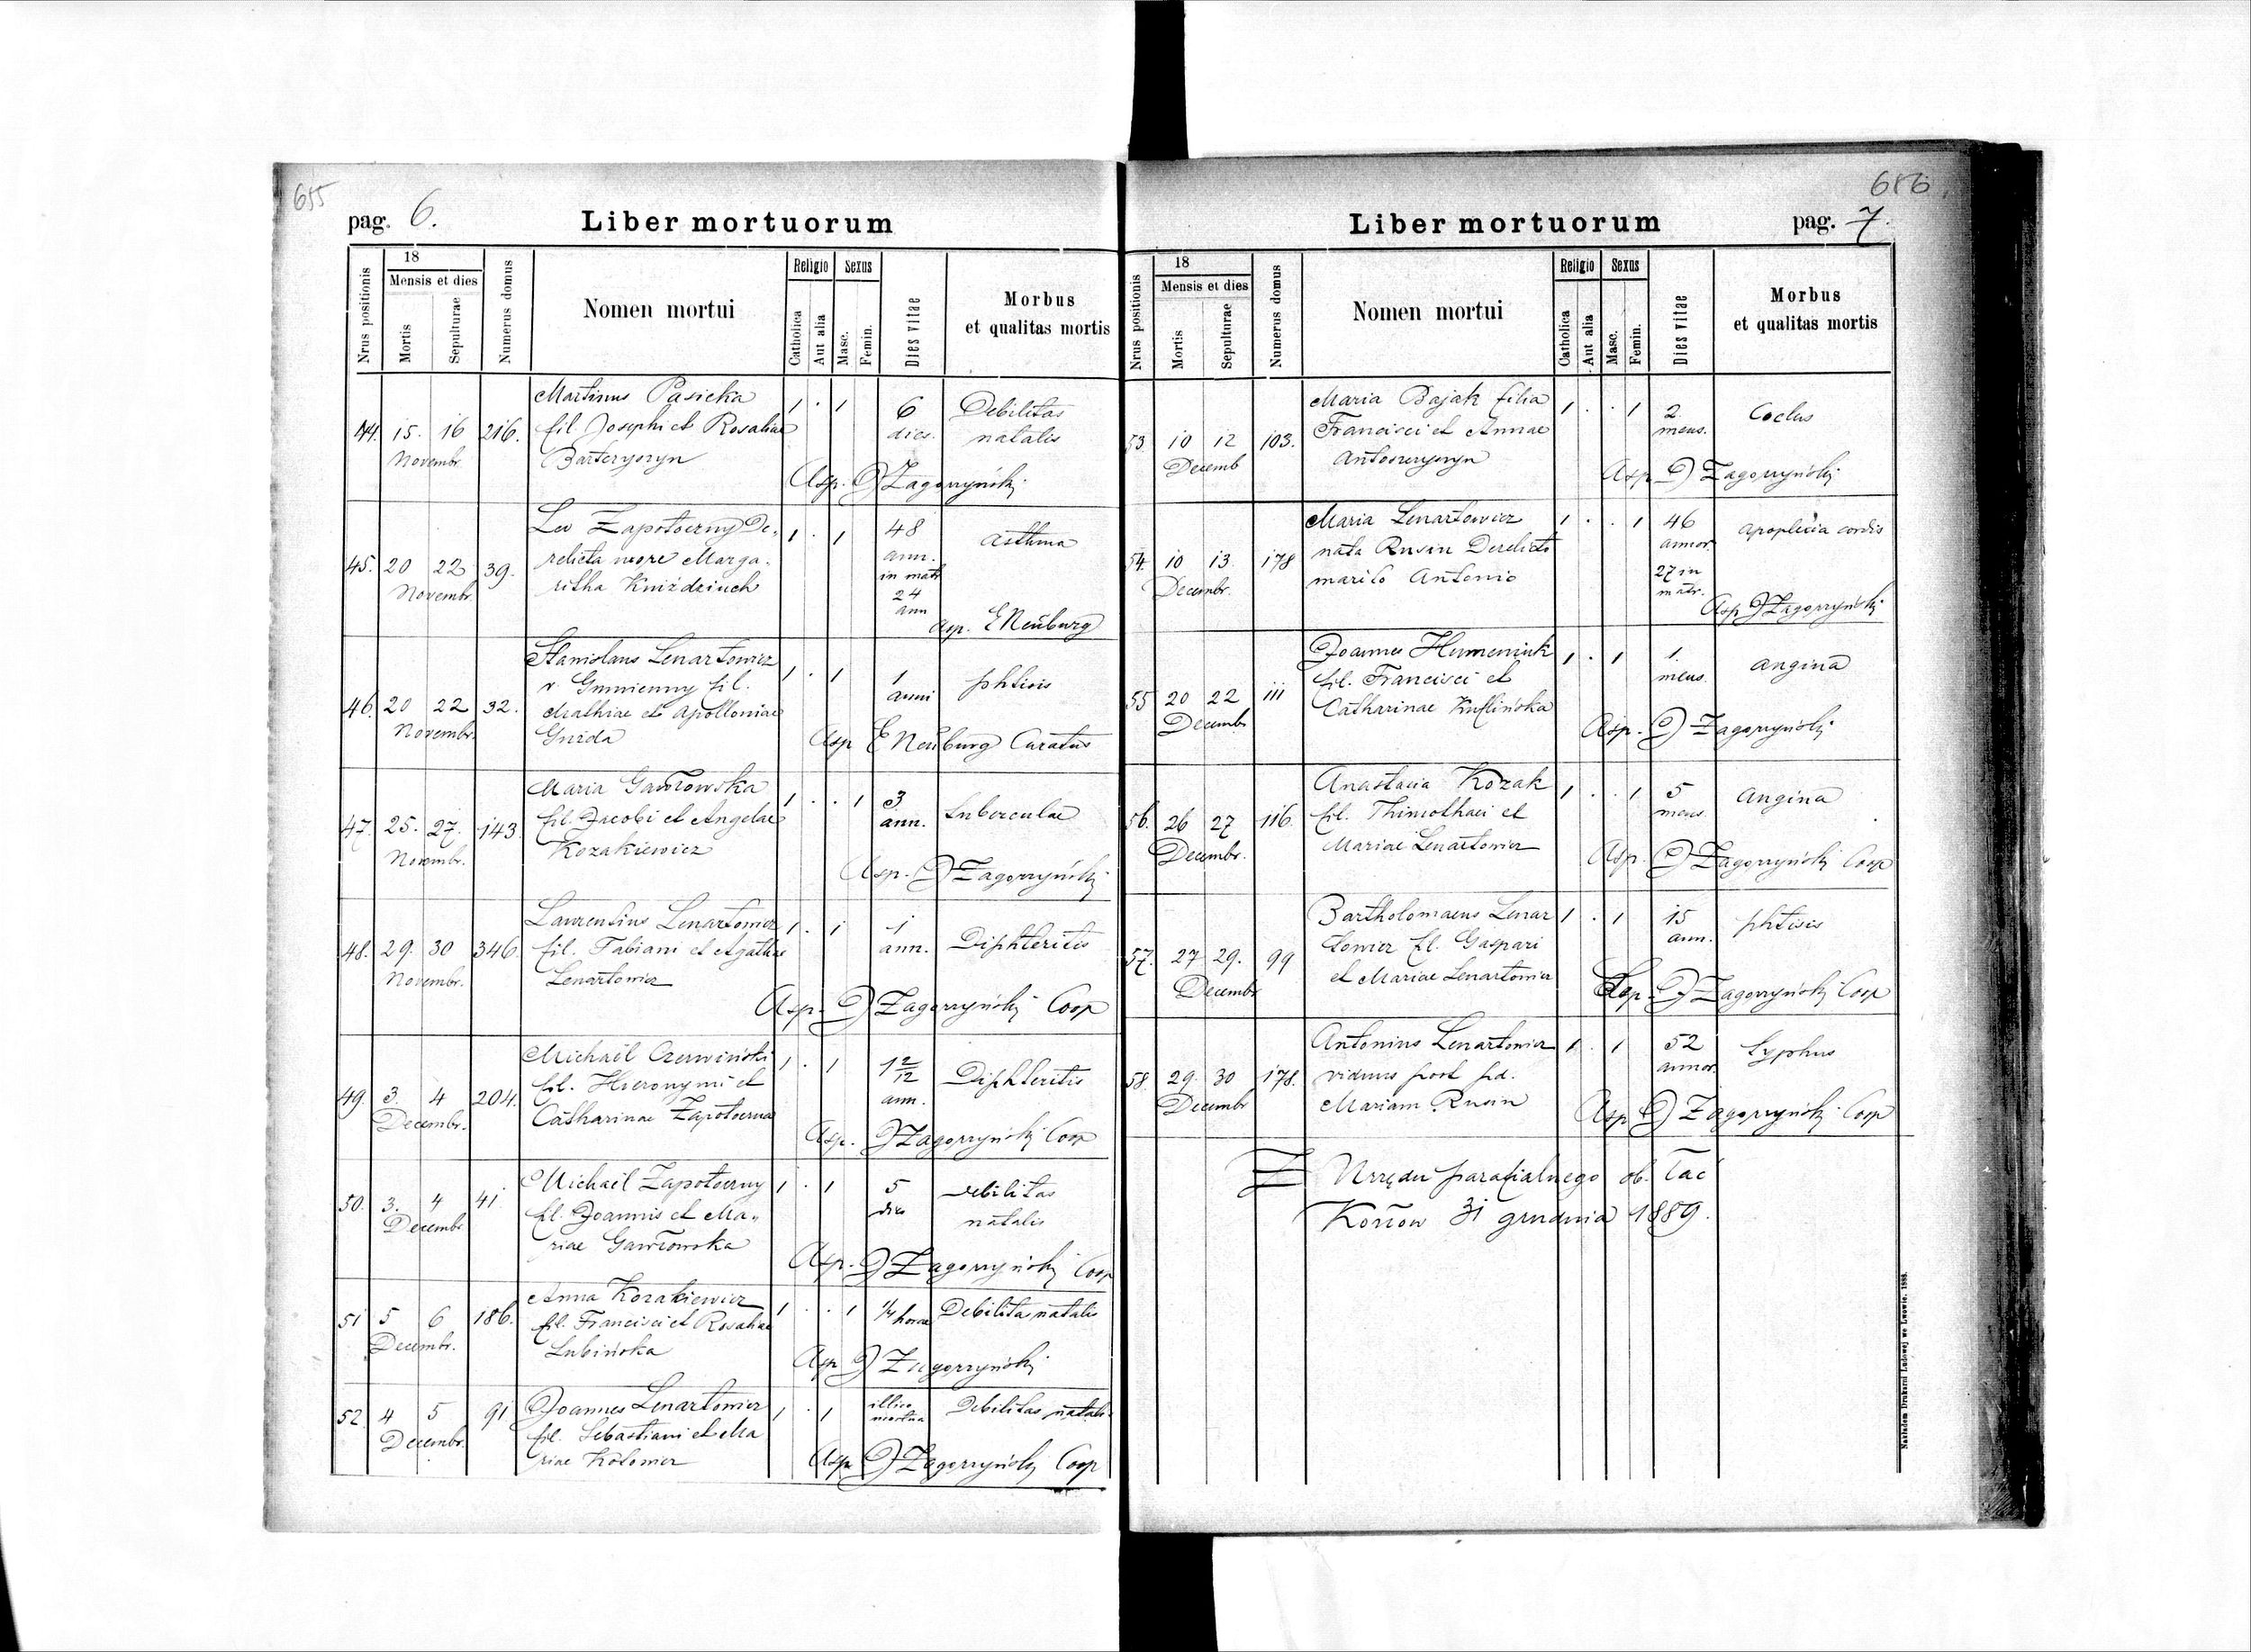 655
pag. 6.
Liber mortuorum
Nrus positionis
18
Mensis et dies
Mortis
Sepulturae
Numerus domus
Nomen mortui
Religio
Catholica
Aut alia
Sexus
Masc.
Femin.
Dies vitae
Morbus
et qualitas mortis
Martinus Pasieka
44. 15. 16 216. fil. Josephi et Rosaliae 1 . 1 6 Debilitas
Novembr. dies. natalis
Asp. Zagorzyński
Leo Zapotoczny De-
45. 20 22 39. relicta uxore Marga- 1 . 1 48 Asthma
Novembr. ritha Kniździuch ann.
in matr
24
ann
Asp. E Neuburg
Stanislaus Lenartowicz
v Gumienny fil. 1 . 1 1 phtisis
46. 20 22 32. Mathiae et Apolloniae anni
Novembr. Guzda
Asp E Neuburg Curatus
Maria Gawłowska
47. 25. 27. 143 fil. Jacobi et Angelae 1 . . 1 3 tuberculae
Novembr. Kozakiewicz ann.
Asp. Zagorzyński
Laurentius Lenartowicz 1 . 1 1
48. 29. 30 346 fil. Fabiani et Agathae ann. Diphteritis
Novembr. Lenartowicz
Asp. Zagorzyński Coop
Michaël Czerwiński 1 . 1 1 2/12
49. 3. 4 204. fil. Hieronymi et ann. Diphteritis
Decembr. Catharinae Zapotoczna
Asp. Zagorzyński Coop
Michaël Zapotoczny 1 . 1 5 Debilitas
50. 3. 4 41 fil. Joannis et Ma- dies natalis
Decembr riae Gawłowska
Asp. Zagorzyński Coop
Anna Kozakiewicz
51 5 6 186. fil. Francisci et Rosaliae 1 . . 1 1/4 horae Debilita natalis
Decembr. Lubińska
Asp Zagorzyński
Joannes Lenartowicz
52. 4 5 91 fil. Sebastiani et Ma 1 . 1 illico mortua Debilitas natalis
Decembr. riae
Asp Zagorzyński Coop
656
Liber mortuorum
pag. 7.
Nrus positionis
18
Mensis et dies
Mortis
Sepulturae
Numerus domus
Nomen mortui
Religio
Catholica
Aut alia
Sexus
Masc.
Femin.
Dies vitae
Morbus
et qualitas mortis
Maria Bajak filia
53 10 12 103. Francisci et Annae 1 . . 1 2 mens.
Decemb
Asp Zagorzyński
Maria Lenartowicz 1 . . 1 46 Apoplexia cordis
54. 10 13. 178 nata Rusin Derelicto annor.
Decembr. marito Antonio 27 in
matr.
Asp Zagorzyński
Joannes Humeniuk 1 . 1 1. Angina
55 20 22 111 fil. Francisci et mens.
Decembr Catharinae Kuflińska
Asp. Zagorzyński
Anastasia Kozak 1 . . 1 5 Angina
56. 26 27 116. fil. Thimothaei et mens.
Decembr. Mariae Lenartowicz
Asp. Zagorzyński Coop
Bartholomaeus Lenar 1 . 1 15 phtisis
57. 27 29. 99 towicz fil. Gaspari ann.
Decembr et Mariae Lenartowicz
Asp. Zagorzyński Coop
Antonius Lenartowicz 1 . 1 52 Typhus
58. 29. 30 178. viduus post pd. annor
Decembr Mariam Rusin
Asp Zagorzyński Coop
Z Urzędu parafialnego ob. łac
Kozłów 31 grudnia 1889.
Nakładem Drukarni Ludowej we Lwowie. 1888.